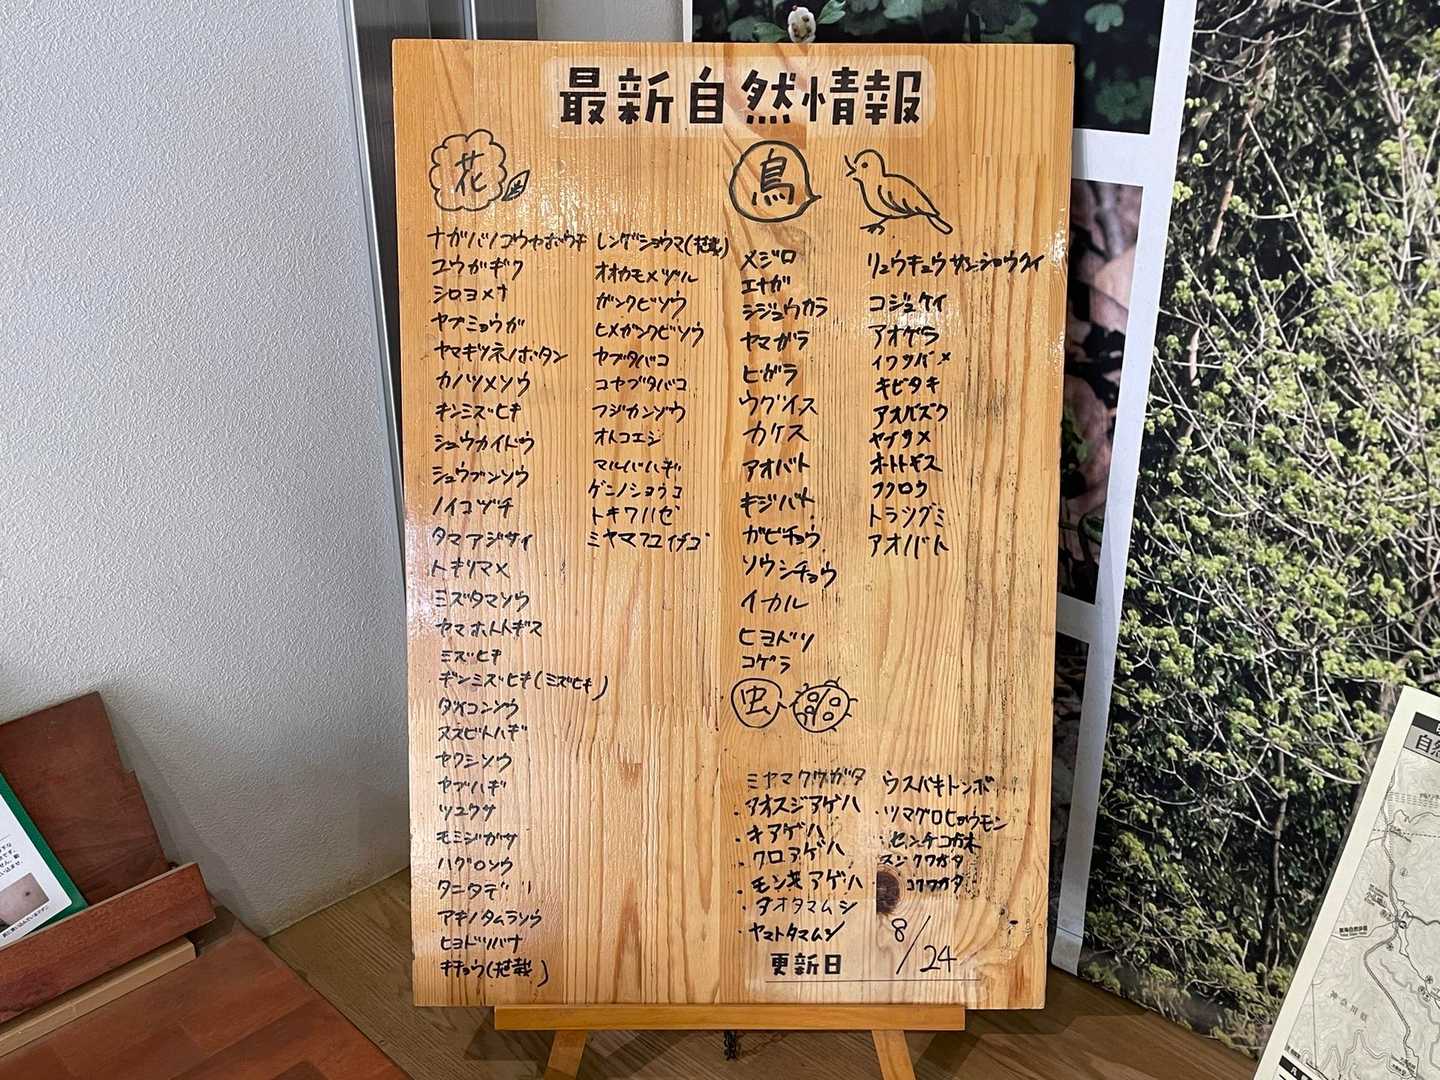 最新自然情報
花
ナガバノコウヤボウキ
ユウガギク
シロヨメナ
ヤブミョウガ
ヤマギツネノボタン
カノツメソウ
キンミズヒキ
シュウカイドウ
シュウブンソウ
ノイコヅチ
タマアジサイ
トキリマメ
ミズタマソウ
ヤマホトトギス
ミズヒキ
ギンミズヒキ(ミズヒキ)
ダイコンソウ
ヌスビトハギ
ヤクシソウ
ヤブハギ
ツユクサ
モミジガサ
ハグロソウ
タニタデ
アキノタムラソウ
ヒヨドリバナ
キキョウ(植栽)
レンゲショウマ(植栽)
オオカモメヅル
ガンクビソウ
ヒメガンクビソウ
ヤブタバコ
コヤブタバコ
フジカンゾウ
オトコエシ
マルバハギ
ゲンノショウコ
トキワハゼ
ミヤマフユイチゴ
鳥
メジロ
エナガ
シジュウカラ
ヤマガラ
ヒガラ
ウグイス
カケス
アオバト
キジバト
ガビチョウ
ソウシチョウ
イカル
ヒヨドリ
コゲラ
リュウキュウサンショウクイ
コジュケイ
アオゲラ
イワツバメ
キビタキ
アオバズク
ヤブサメ
ホトトギス
フクロウ
トラツグミ
アオバト
虫
ミヤマクワガタ
・アオスジアゲハ
・キアゲハ
・クロアゲハ
・モンキアゲハ
・アオタマムシ
・ヤマトタマムシ
ウスバキトンボ
・ツマグロヒョウモン
・センチコガネ
スジクワガタ
コクワガタ
更新日 8/24